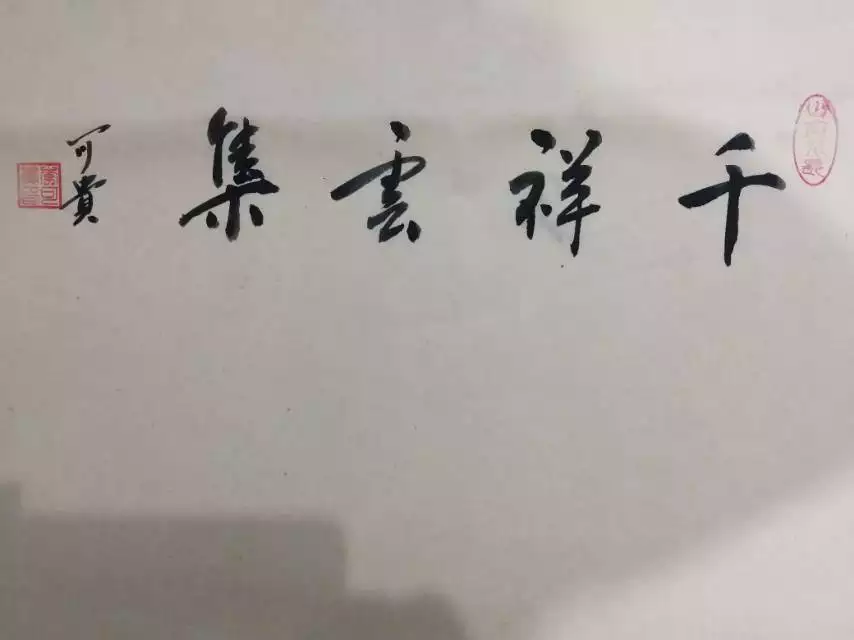 千祥雲集
可貴